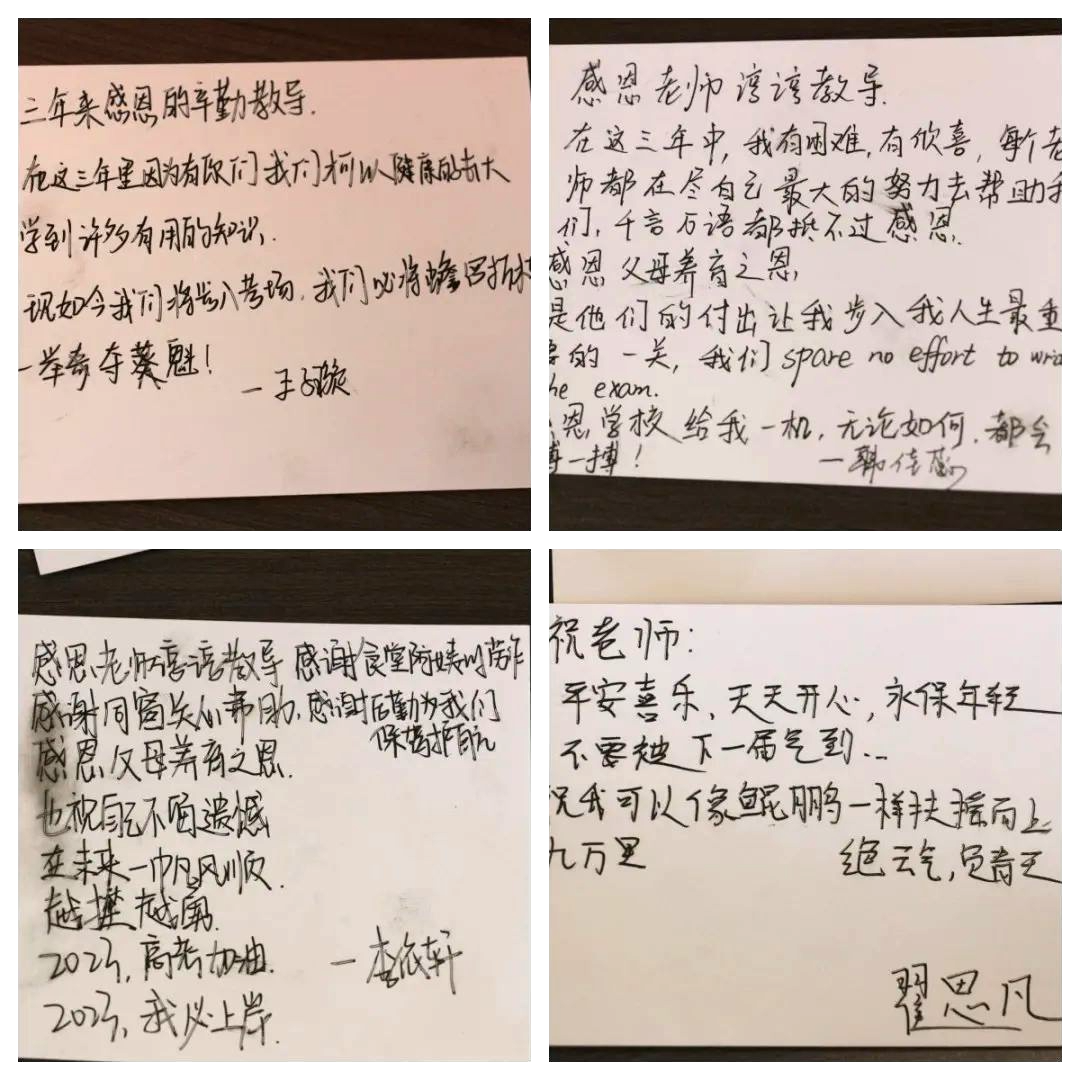 三年来感恩的辛勤教导.
在这三年里因为有你们我们才可以健康的长大
学到许多有用的知识.
现如今我们将步入考场,我们必将蟾宫折桂
一举夺魁!
一王
感恩老师谆谆教导.
在这三年中,我有困难,有欣喜,每个老
师都在尽自己最大的努力去帮助我
们,千言万语都抵不过感恩.
感恩父母养育之恩
是他们的付出让我步入我人生最重
要的一关,我们spare no effort to
he exam.
恩学校给我一机,无论如何,都会
搏一搏!
一韩佳
感恩老师谆谆教导 感谢食堂阿姨的劳作
感谢同窗关心帮助,感谢后勤为我们
保驾护航
感恩父母养育之恩.
也祝自己不留遗憾
在未来一帆风顺.
越挫越勇.
2023,高考加油.
一李依轩
2023,我必上岸.
祝老师:
平安喜乐,天天开心,永保年轻
不要被下一届气到...
祝我可以像鲲鹏一样扶摇而上
九万里 绝云气,负青天
翟思凡